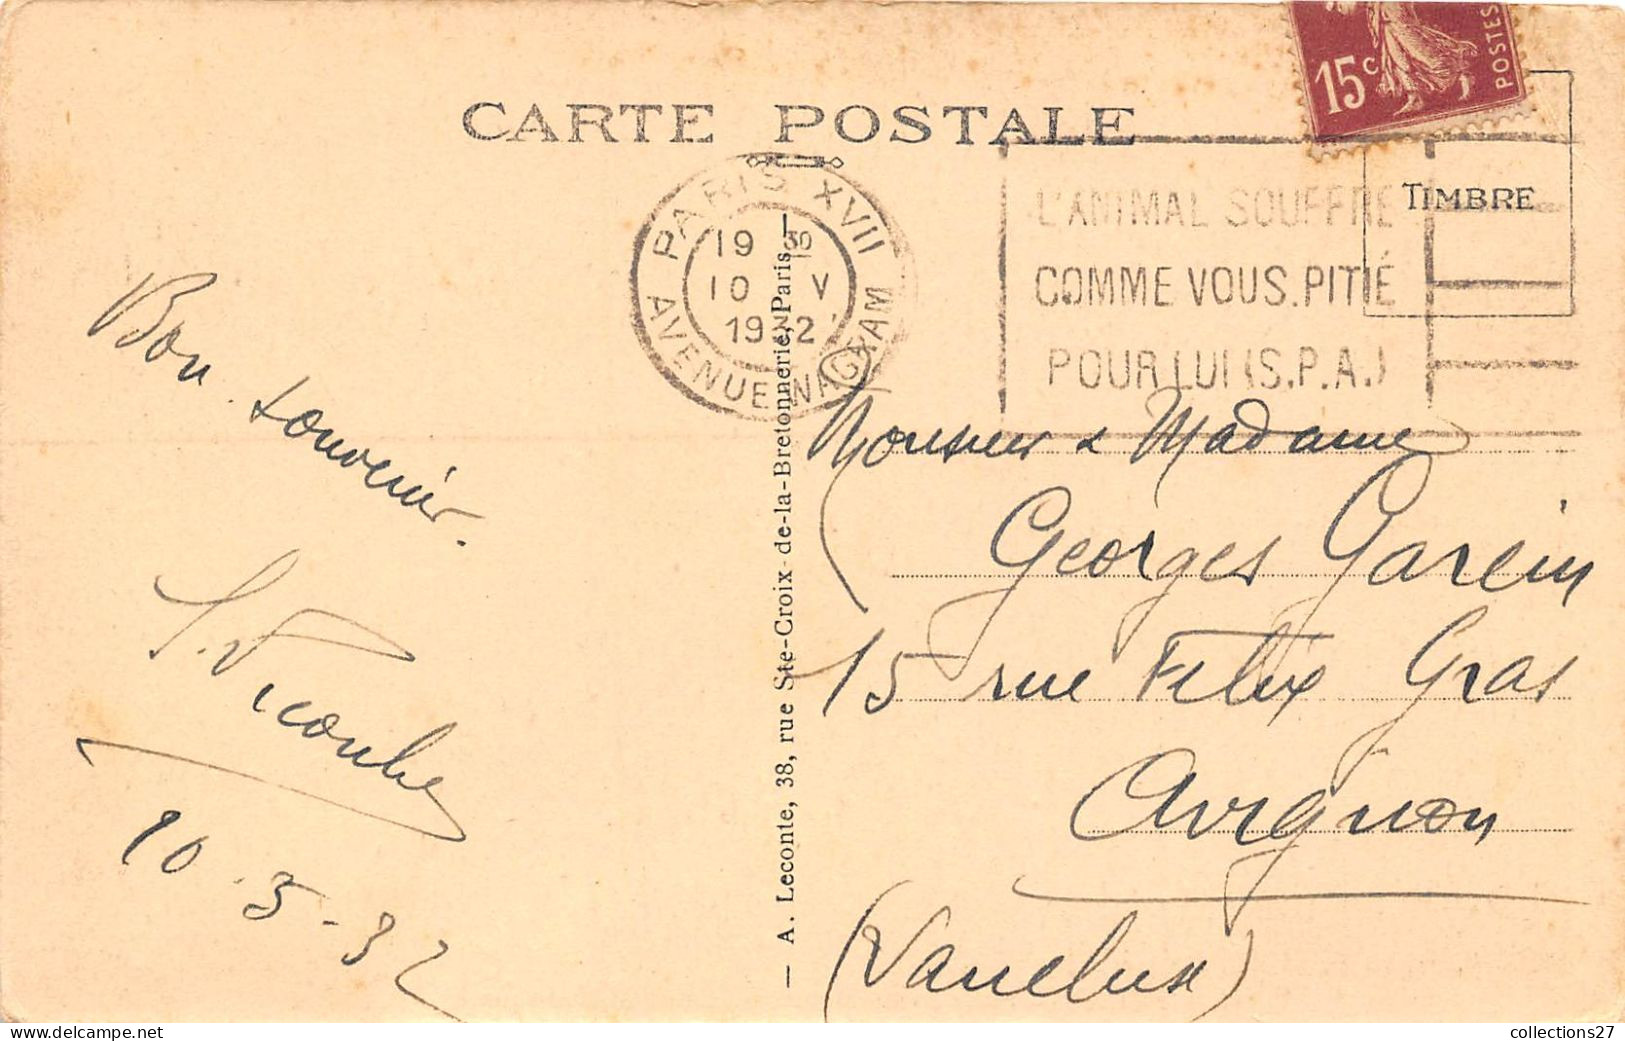 CARTE POSTALE
15c
POSTES
TIMBRE
PARIS XVII
19 30
10 V
1932
AVENUE WAGRAM
L'ANIMAL SOUFFRE
COMME VOUS. PITIÉ
POUR LUI (S.P.A.)
Bon
souvenir.
10.5-32
— A. Leconte, 38, rue Ste-Croix-de-la-Bretonnerie, Paris —
Monsieur & Madame
Georges Garcin
15 rue Felix Gras
Avignon
(Vaucluse)
collections27